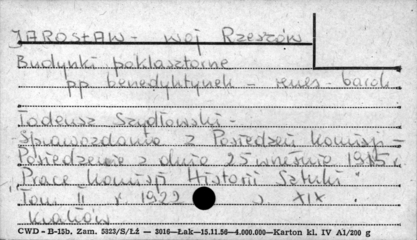 JAROSŁAW - woj Rzeszów
Budynki poklasztorne
pp benedyktynek - renes - barok
Tadeusz Szydłowski -
Sprawozdanie z Posiedzeń Komisji -
Posiedzenie z dnia 25 wrześnie 1915 r
Prace Komisji Historii Sztuki"
"Tom II r 1922 s XIX.
Kraków
CWD - B-15b, Zam. 5823/S/Łż — 3016—Łak—15.11.56—4.000.000—Karton kl. IV A1/200 g